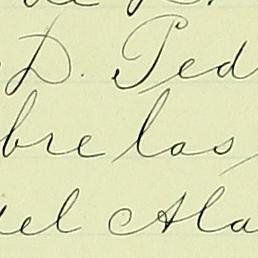 de
D. Ped
bre las
el Ala